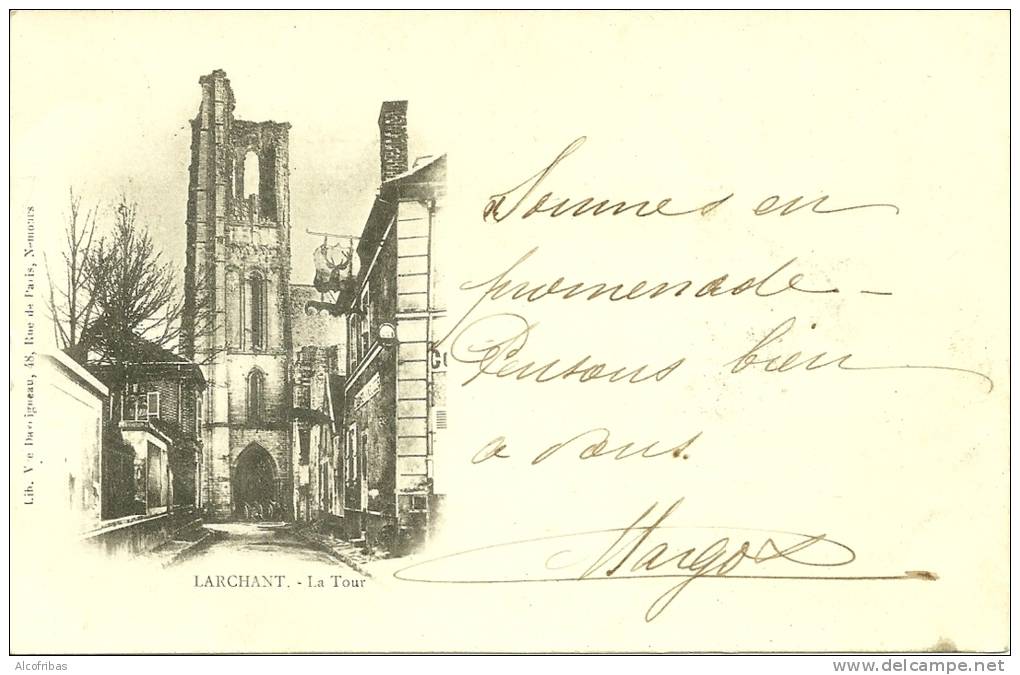 Sommes en
promenade –
Pensons bien
a vous.
Margot
LARCHANT. - La Tour
Lib. Vve Daveigneau, 48, Rue de Paris, Nemours
Alcofribas
www.delcampe.net